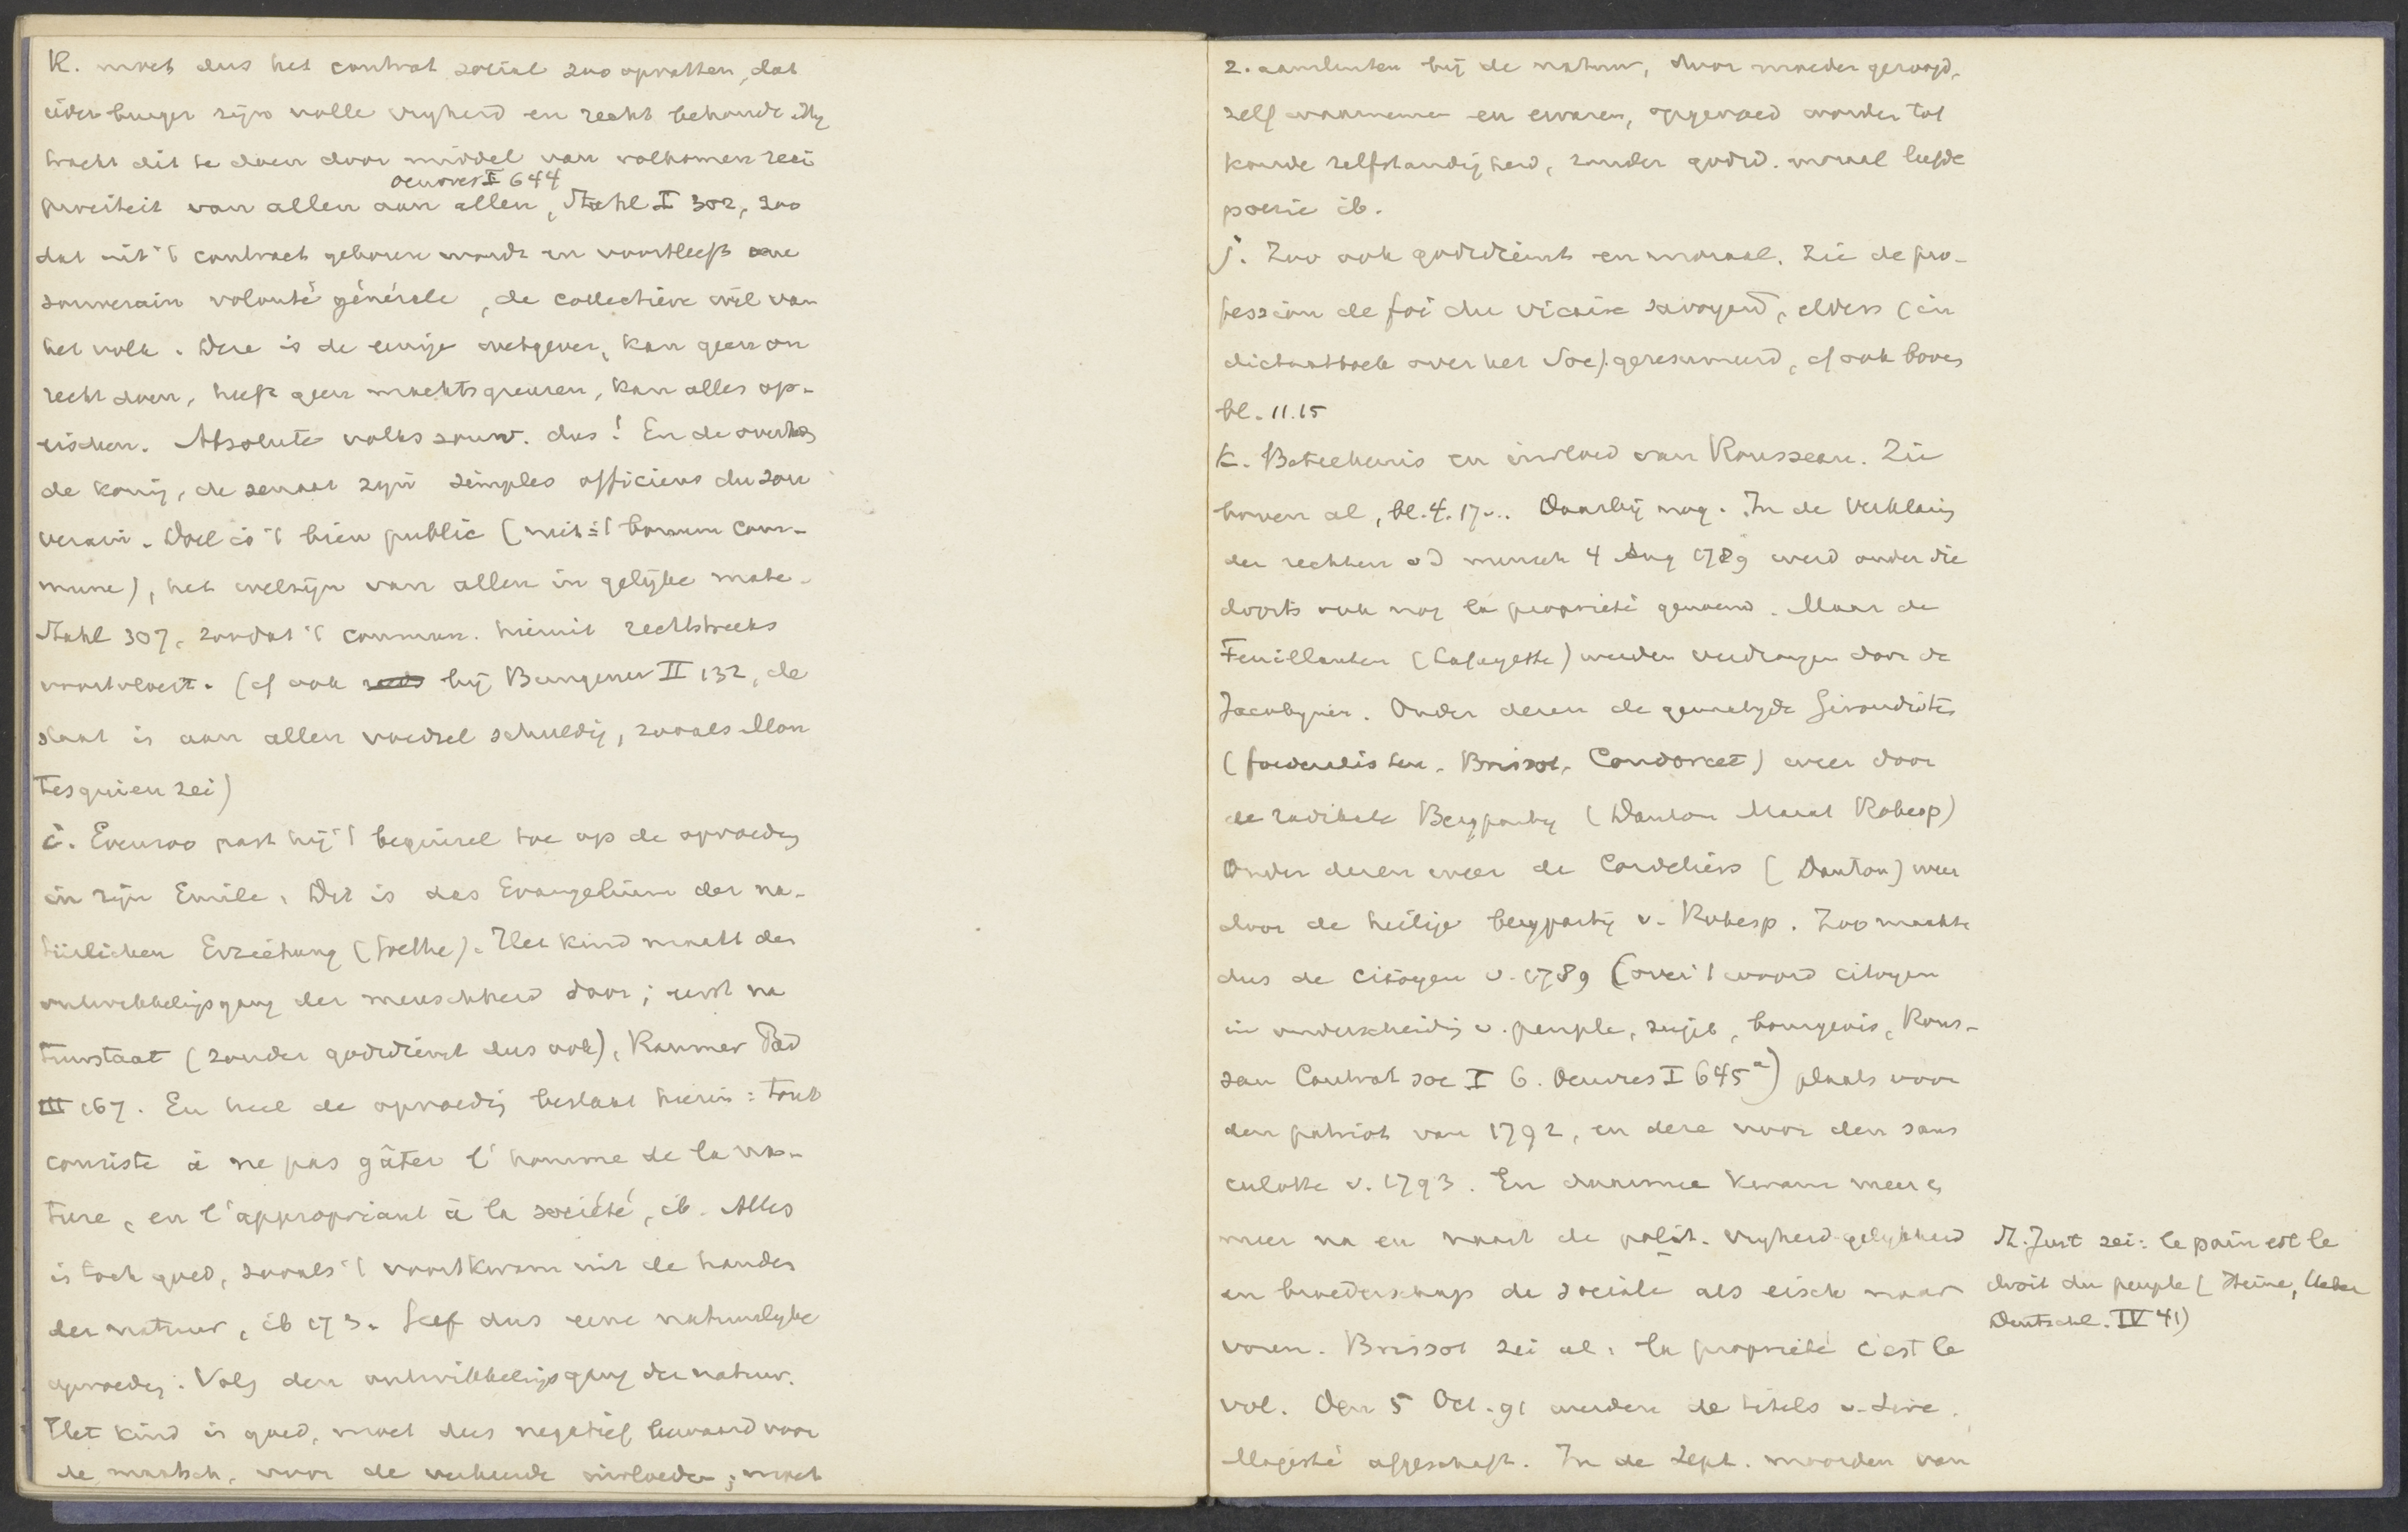 R. moet dus het contrat social zoo opvatten, dat
ieder burger zijn volle vryheid en recht behoude. Hy
tracht dit te doen door middel van volkomen reci
Oeuvres I 644
prociteit van allen aan allen, Stahl I 302, zoo
dat uit 't contract geboren wordt en voortleeft eene
souverain volonté générale, de collectieve wil van
het volk. Deze is de eenige wetgever, kan geen on
recht doen, heeft geen machtsgrenzen, kan alles op-
eischen. Absolute volkssouv. dus! En de overheid
de koning, de senaat zyn simples officiers du sou
verain. Doel is 't bien public (niet = 't bonum com-
mune), het welzijn van allen in gelijke mate.
Stahl 307, zoodat 't commun. hieruit rechtstreeks
voortvloeit. (cf ook bij Bungener II 132, de
staat is aan allen voedsel schuldig, zooals Mon
tesquieu zei)
i. Evenzoo past hij 't beginsel toe op de opvoeding
in zijn Emile. Dit is das Evangelium der na-
türlichen Erziehung (Goethe). Het kind maakt den
ontwikkelingsgang der menschheid door; eerst na
tuurstaat (zonder godsdienst dus ook), Raumer Päd
III 167. En heel de opvoeding bestaat hierin: tout
consiste à ne pas gâter l'homme de la na-
ture, en l'appropriant à la société, ib. Alles
is toch goed, zooals 't voortkwam uit de handen
der natuur, ib 173. Geef dus eene natuurlyke
opvoeding. Volg den ontwikkelingsgang der natuur.
Het kind is goed, moet dus negatief bewaard voor
de maatsch. voor de verkeerde invloeden; moet
z. aansluiten bij de natuur, door moeder gezoogd,
zelf waarnemen en ervaren, opgevoed worden tot
koude zelfstandigheid, zonder godsd. moraal liefde
poezie ib.
j. Zoo ook godsdienst en moraal. Zie de pro-
fession de foi du vicaire savoyard, elders (in
dictaatboek over het Soc). geresumeerd, cf ook boven
bl. 11.15
k. Beteekenis en invloed van Rousseau. Zie
boven al, bl. 4. 17... Daarbij nog. In de Verklaring
der rechten v d mensch 4 Aug 1789 werd onder die
droits ook nog la propriété genoemd. Maar de
Feuillanten (Lafayette) werden verdrongen door de
Jacobynen. Onder dezen de gematigde Girondistes
(foederalisten, Brissot, Condorcet) weer door
de radikale Bergparty (Danton Marat Robesp)
Onder dezen weer de Cordeliers (Danton) weer
door de heilige bergpartij v. Robesp. Zoo maakte
dus de citoyen v. 1789 (over 't woord citoyen
in onderscheiding v. peuple, sujet, bourgeois, Rous-
seau Contrat soc I 6. Oeuvres I 645a) plaats voor
den patriot van 1792, en deze voor den sans
culotte v. 1793. En daarmee kwam meer en
meer na en naast de polit. vryheid-gelykheid
en broederschap de sociale als eisch naar
voren. Brissot zei al: la propriété c'est le
vol. Den 5 Oct. 91 werden de titels v. Sire.
Majesté afgeschaft. In de Sept. moorden van
St. Just zei: le pain est le
droit du peuple (Heine, Ueber
Deutschl. IV 41)